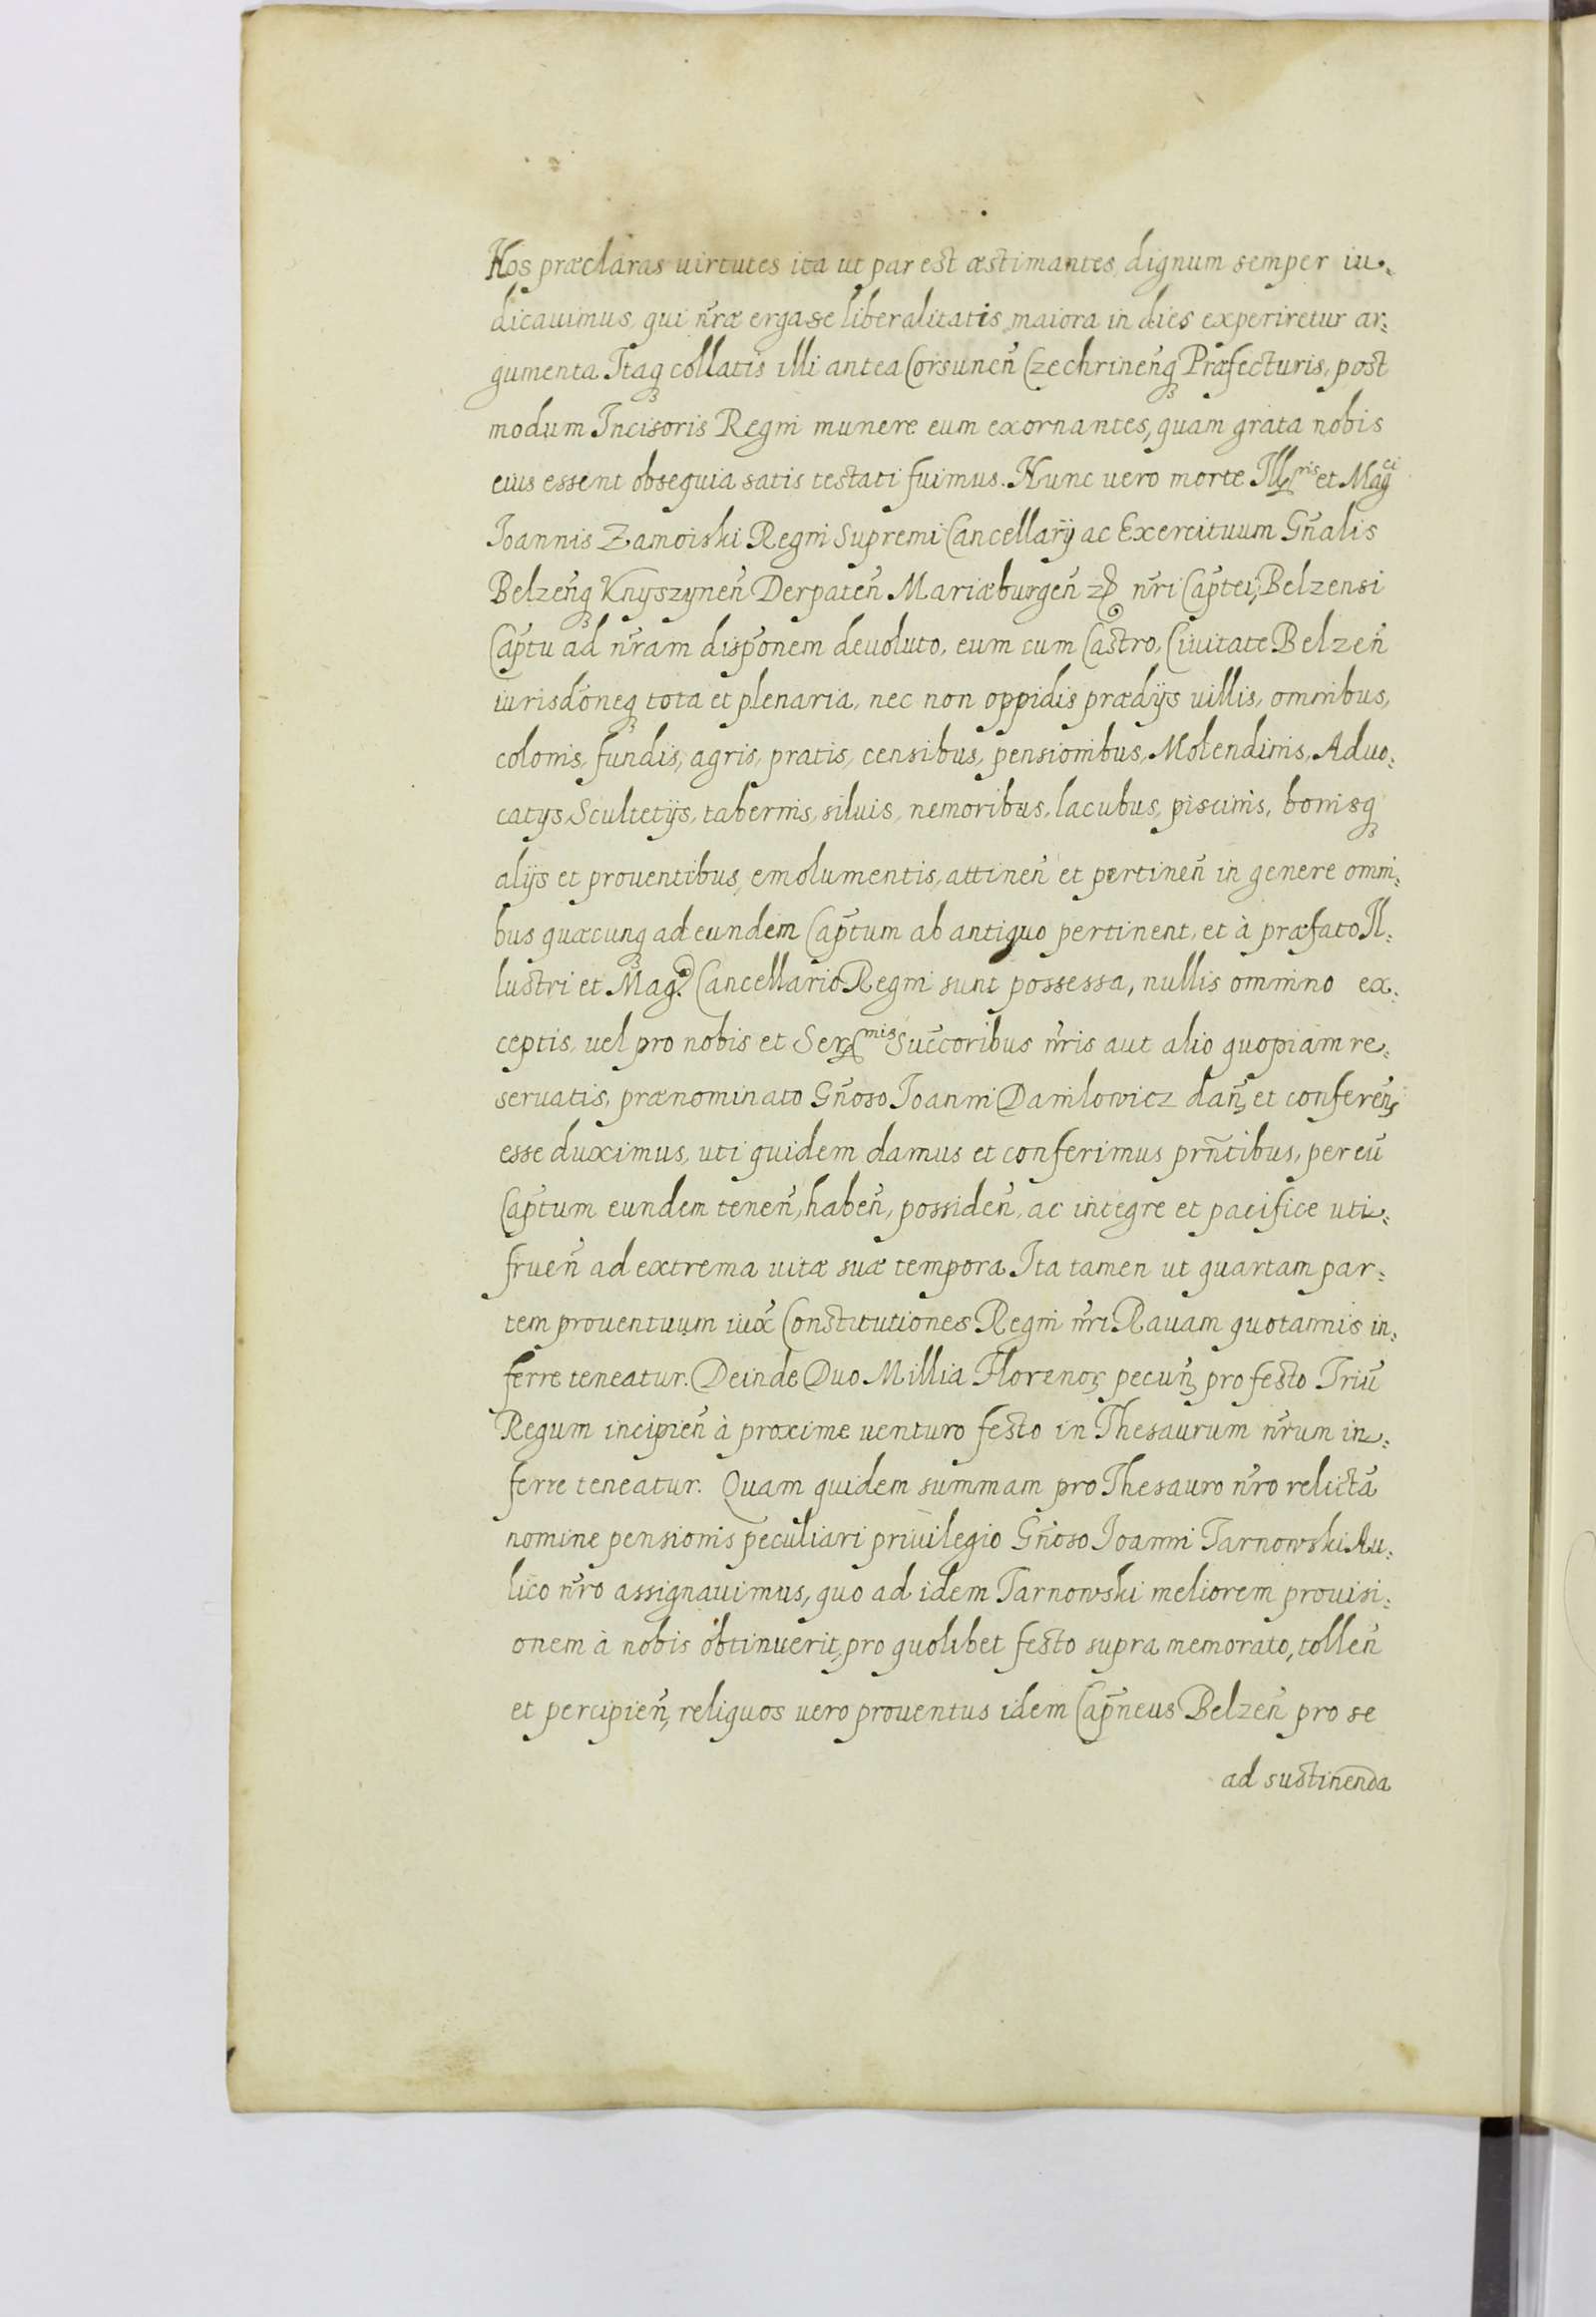 Hos præclaras uirtutes ita ut par est æstimantes, dignum semper iu-
dicauimus, qui nr̃æ erga se liberalitatis maiora in dies experiretur ar-
gumenta. Itaq collatis illi antea Corsunen̄ Czechrinen̄q Præfecturis, post
modum Incisoris Regni munere eum exornantes, quam grata nobis
eius essent obsequia satis testati fuimus. Nunc uero morte Ill^ris et Mag^ci
Joannis Zamoiski Regni Supremi Cancellarij ac Exercituum Gñalis
Belzen̄q Knyszynen̄ Derpaten̄ Mariæburgen̄ zꝭ nr̃i Captei, Belzensi
Captu ad nr̃am disponem deuoluto, eum cum Castro, Ciuitate Belzen̄
iurisdoneq tota et plenaria, nec non oppidis prædijs uillis, omnibus,
colonis, fundis, agris, pratis, censibus, pensionibus, Molendinis, Aduo-
catijs Scultetijs, tabernis, siluis, nemoribus, lacubus, piscinis, bonisq
alijs et prouentibus, emolumentis, attinen̄ et pertinen̄ in genere omni-
bus quæcunq ad eundem Captum ab antiquo pertinent, et à præfato Il-
lustri et Mag^co Cancellario Regni sunt possessa, nullis omnino ex-
ceptis, uel pro nobis et Ser^mis Succoribus nr̃is aut alio quopiam re-
seruatis, prænominato Gñoso Joanni Danilowicz dan̄ et conferen̄
esse duximus, uti quidem damus et conferimus prñtibus, per eū
Captum eundem tenen̄, haben̄, possiden̄, ac integre et pacifice uti-
fruen̄ ad extrema uitæ suæ tempora. Ita tamen ut quartam par-
tem prouentuum iux̃ Constitutiones Regni nr̃i Rauam quotannis in-
ferre teneatur. Deinde Duo Millia Florenoꝝ pecun̄ pro festo Triū
Regum incipien̄ à proxime uenturo festo in Thesaurum nr̃um in-
ferre teneatur. Quam quidem summam pro Thesauro nr̃o relictā
nomine pensionis peculiari priuilegio Gñoso Joanni Tarnowski Au-
lico nr̃o assignauimus, quo ad idem Tarnowski meliorem prouisi-
onem à nobis obtinuerit, pro quolibet festo supra memorato, tollen̄
et percipien̄, reliquos uero prouentus idem Capñeus Belzen̄ pro se
ad sustinenda